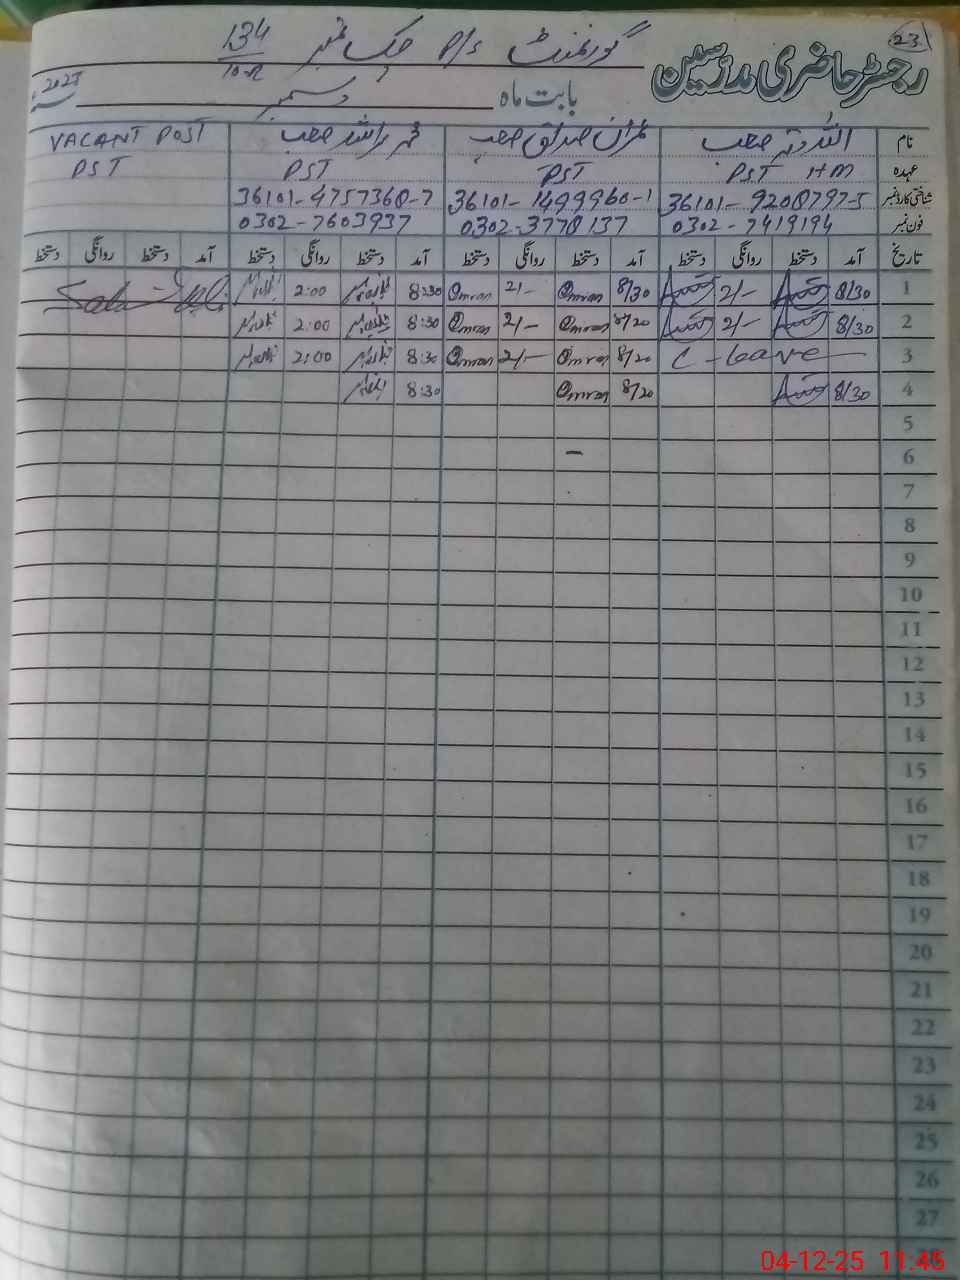 23
رجسٹر حاضری مدرسین
گورنمنٹ P/S چک نمبر 134/10-R
بابت ماہ دسمبر 2025
نام اللہ دتہ صاحب عمران صداق صاحب محمد راشد صاحب VACANT POST
عہدہ PST HM PST PST PST
شناختی کارڈ نمبر 36101-9208797-5 36101-1499960-1 36101-4757360-7
فون نمبر 0302-7419194 0302-3778137 0302-7603937
تاریخ آمد دستخط روانگی دستخط آمد دستخط روانگی دستخط آمد دستخط روانگی دستخط آمد دستخط روانگی دستخط
1 8/30 2/- 8/30 Omran 2/- Omran 8:30 2:00
2 8/30 2/- 8/20 Omran 2/- Omran 8:30 2:00
3 C-Leave 8/20 Omran 2/- Omran 8:30 2:00
4 8/30 8/20 Omran 8:30
5
6 -
7
8
9
10
11
12
13
14
15
16
17
18
19
20
21
22
23
24
25
26
27
04-12-25 11:45